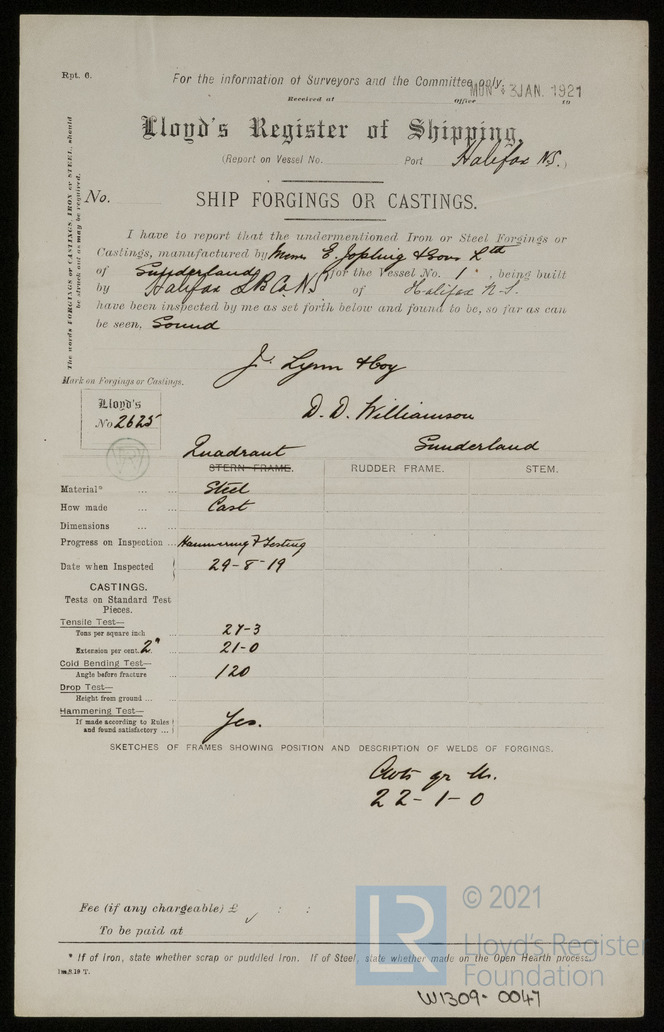 Rpt. 6.
For the information of Surveyors and the Committee only.
MON 3 JAN. 1921
Received at Office 19
Lloyd's Register of Shipping.
(Report on Vessel No. Port Halifax N.S.)
No. SHIP FORGINGS OR CASTINGS.
The words FORGINGS or CASTINGS, IRON or STEEL, should
be struck out as may be required.
I have to report that the undermentioned Iron or Steel Forgings or
Castings, manufactured by Messrs E. Jopling & Sons Ltd
of Sunderland, for the Vessel No. 1, being built
by Halifax S.B. Co. N.S. of Halifax N.S.
have been inspected by me as set forth below and found to be, so far as can
be seen, Sound
J. Lynn & Coy
Mark on Forgings or Castings.
Lloyd's
No 2625
D. D. Williamson
Sunderland
Quadrant
STERN FRAME. RUDDER FRAME. STEM.
Material* ... ... Steel
How made ... ... Cast
Dimensions ... ...
Progress on Inspection ... Hammering & Testing
Date when Inspected 29-8-19
CASTINGS.
Tests on Standard Test
Pieces.
Tensile Test—
Tons per square inch ... 27-3
Extension per cent. 2" ... 21-0
Cold Bending Test—
Angle before fracture ... 120
Drop Test—
Height from ground ... ...
Hammering Test—
If made according to Rules
and found satisfactory ... Yes.
SKETCHES OF FRAMES SHOWING POSITION AND DESCRIPTION OF WELDS OF FORGINGS.
Cwts qr lbs.
22-1-0
Fee (if any chargeable) £ : :
To be paid at
* If of Iron, state whether scrap or puddled Iron. If of Steel, state whether made on the Open Hearth process.
LR © 2021
Lloyd's Register
Foundation
W1309-0047